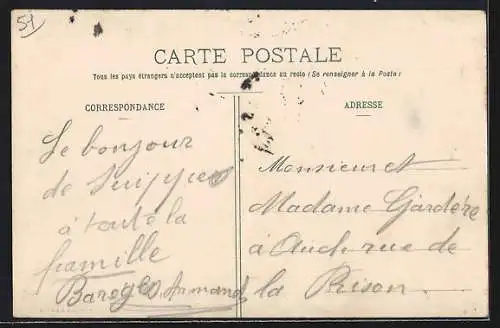 51
CARTE POSTALE
Tous les pays étrangers n'acceptent pas la correspondance au recto (Se renseigner à la Poste)
CORRESPONDANCE
Le bonjour
de Suippes
à toute la
famille
Baroges Armand
ADRESSE
Monsieur et
Madame Gardère
à Auch rue de
la Prison